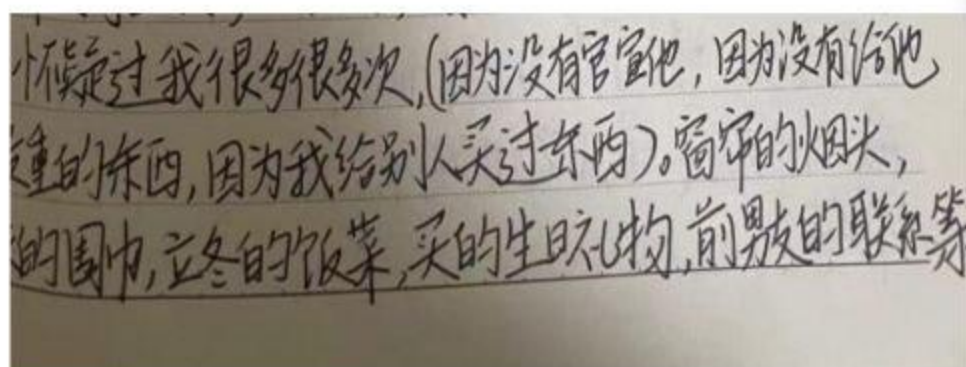 怀疑过我很多很多次,(因为没有官宣他,因为没有给他
重的东西,因为我给别人买过东西)。窗帘的烟头,
的围巾,立冬的饭菜,买的生日礼物,前男友的联系等